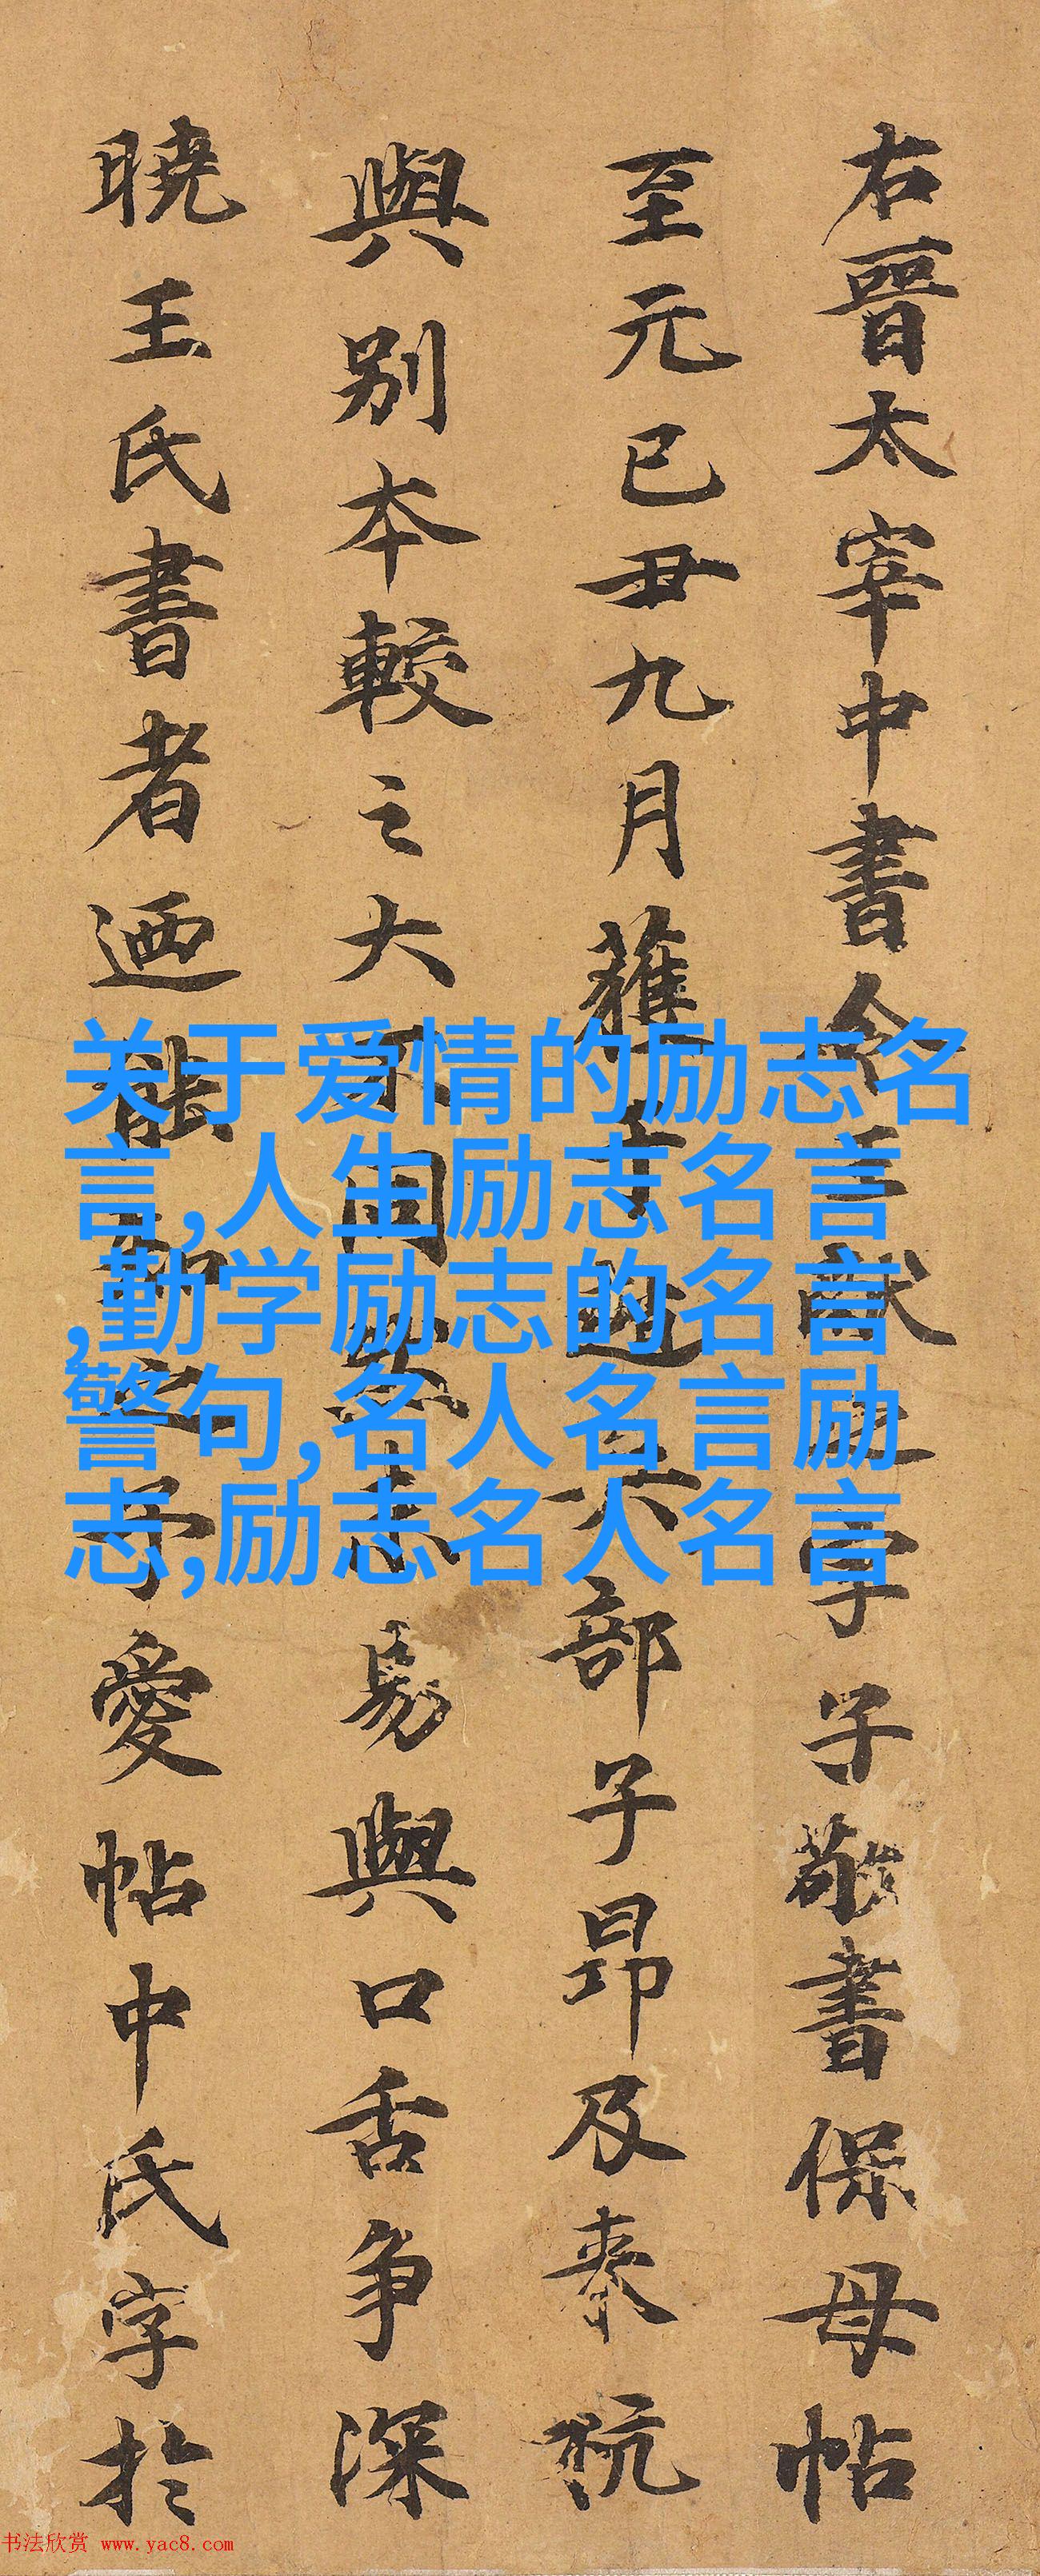 右晉太宰中書令王獻之字子敬書保母帖
至元己丑九月獲於趙兵部子昂及來杭
與別本較之大不同然未易與口舌爭深
曉王氏書者迺能知之予愛帖中氏字於
关于爱情的励志名
言,人生励志名言
,勤学励志的名言
警句,名人名言励
志,励志名人名言
书法欣赏 www.yac8.com